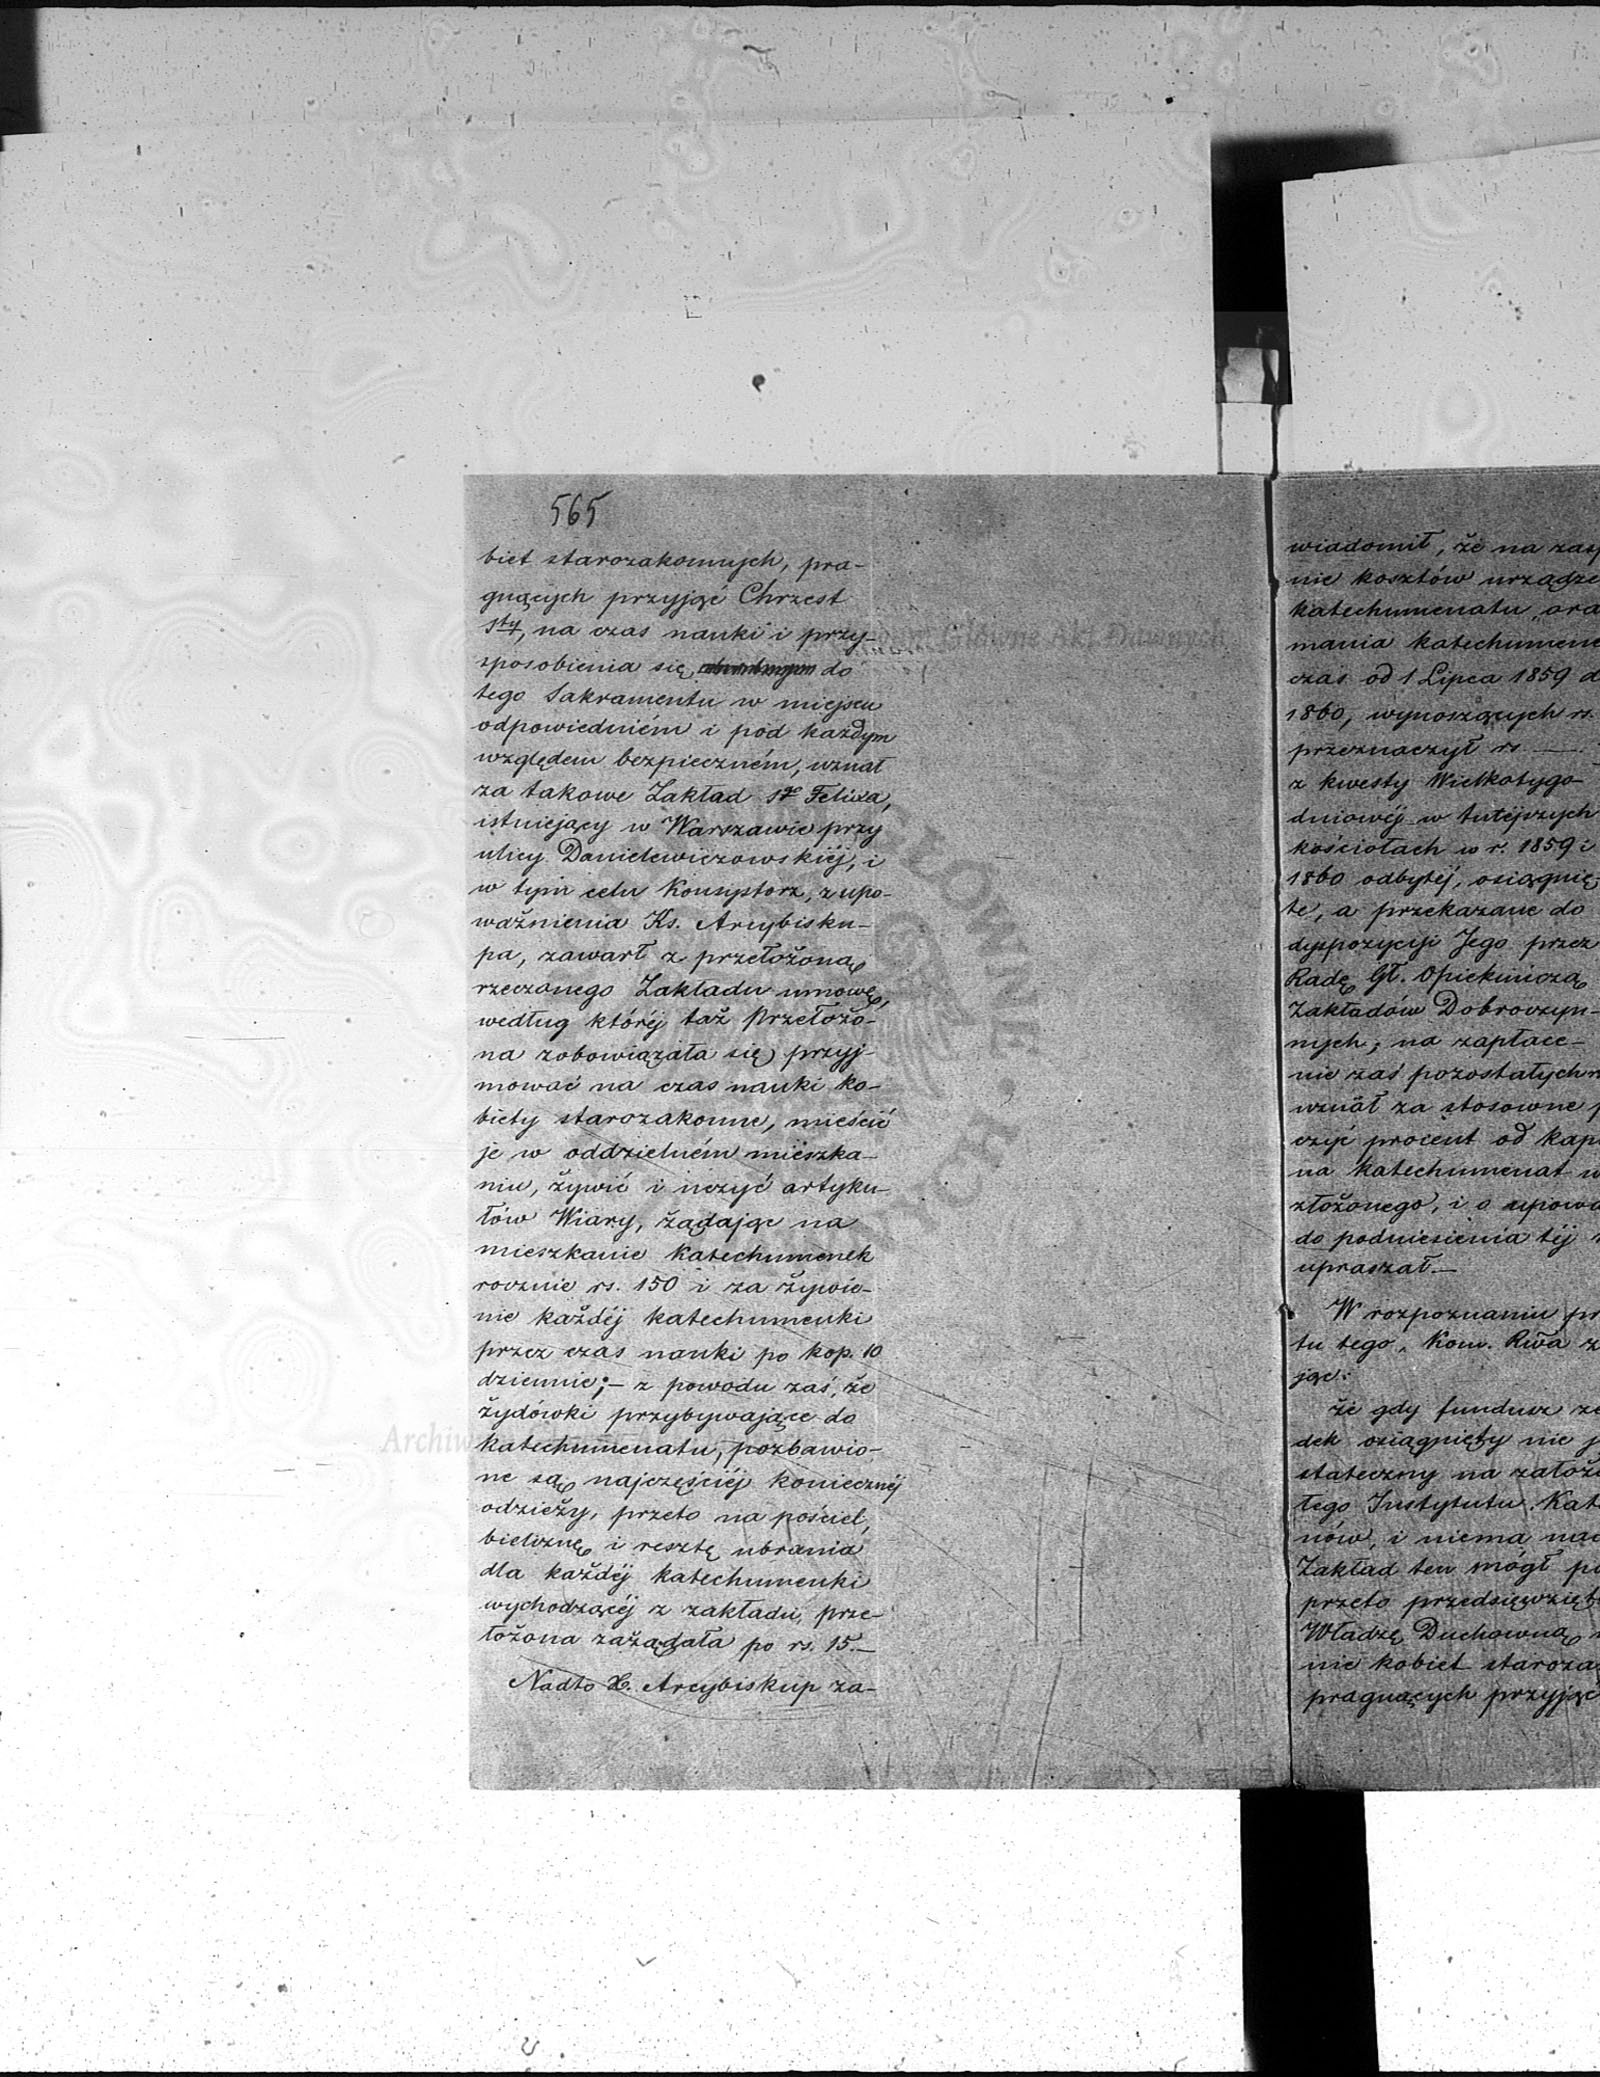 565
biet starozakonnych, pra-
gnących przyjąć Chrzest
Sty, na czas nauki i przy-
sposobienia się do
tego Sakramentu w miejscu
odpowiedniém i pod każdym
względem bezpieczném, uznał
za takowe Zakład Sgo Felixa,
istniejący w Warszawie przy
ulicy Danielewiczowskiéj, i
w tym celu Konsystorz, z upo-
ważnienia Ks. Arcybisku-
pa, zawarł z przełożoną
rzeczonego Zakładu umowę,
według któréj taż Przełożo-
na zobowiązała się przyj-
mować na czas nauki ko-
biety starozakonne, mieścić
je w oddzielném mieszka-
niu, żywić i uczyć artyku-
łów Wiary, żądając na
mieszkanie katechumenek
rocznie rs. 150 i za żywie-
nie każdéj katechumenki
przez czas nauki po kop. 10
dziennie; – z powodu zaś, że
żydówki przybywające do
katechumenatu, pozbawio-
ne są najczęściéj koniecznéj
odzieży, przeto na pościel,
bieliznę i resztę ubrania
dla każdéj katechumenki
wychodzącéj z zakładu, prze-
łożona zażądała po rs. 15.—
Nadto X. Arcybiskup za-
wiadomił, że na zasp
nie kosztów urządze
katechumenatu ora
mania katechumene
czas od 1 Lipca 1859 d
1860, wynoszących rs.
przeznaczył rs —
z kwesty Wielkotygo-
dniowéj w tutéjszych
kościołach w r. 1859 i
1860 odbytéj, osiągnię-
te, a przekazane do
dyspozycyi Jego przez
Radę Gł. Opiekuńczą
Zakładów Dobroczyn-
nych; na zapłace-
nie zaś pozostałych
uznał za stosowne p
czyć procent od kapi
na katechumenat u
złożonego, i o upowa
do podniesienia téj
upraszał.—
W rozpoznaniu pr
tu tego, Kom. Rwa z
jąc:
że gdy fundusz ze
dek osiągnięty nie j
stateczny na założe
łego Instytutu Kate
nów, i niema nad
Zakład ten mógł po
przeto przedsięwzięt
Władzę Duchowną
nie kobiet staroza
pragnących przyjąć
Archiwum Główne Akt Dawnych